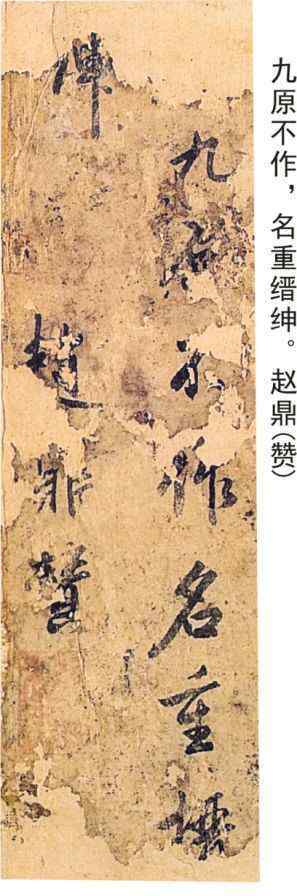 九原不作，名重缙绅。赵鼎(赞)
九原不作名重搢
绅
趙鼎贊